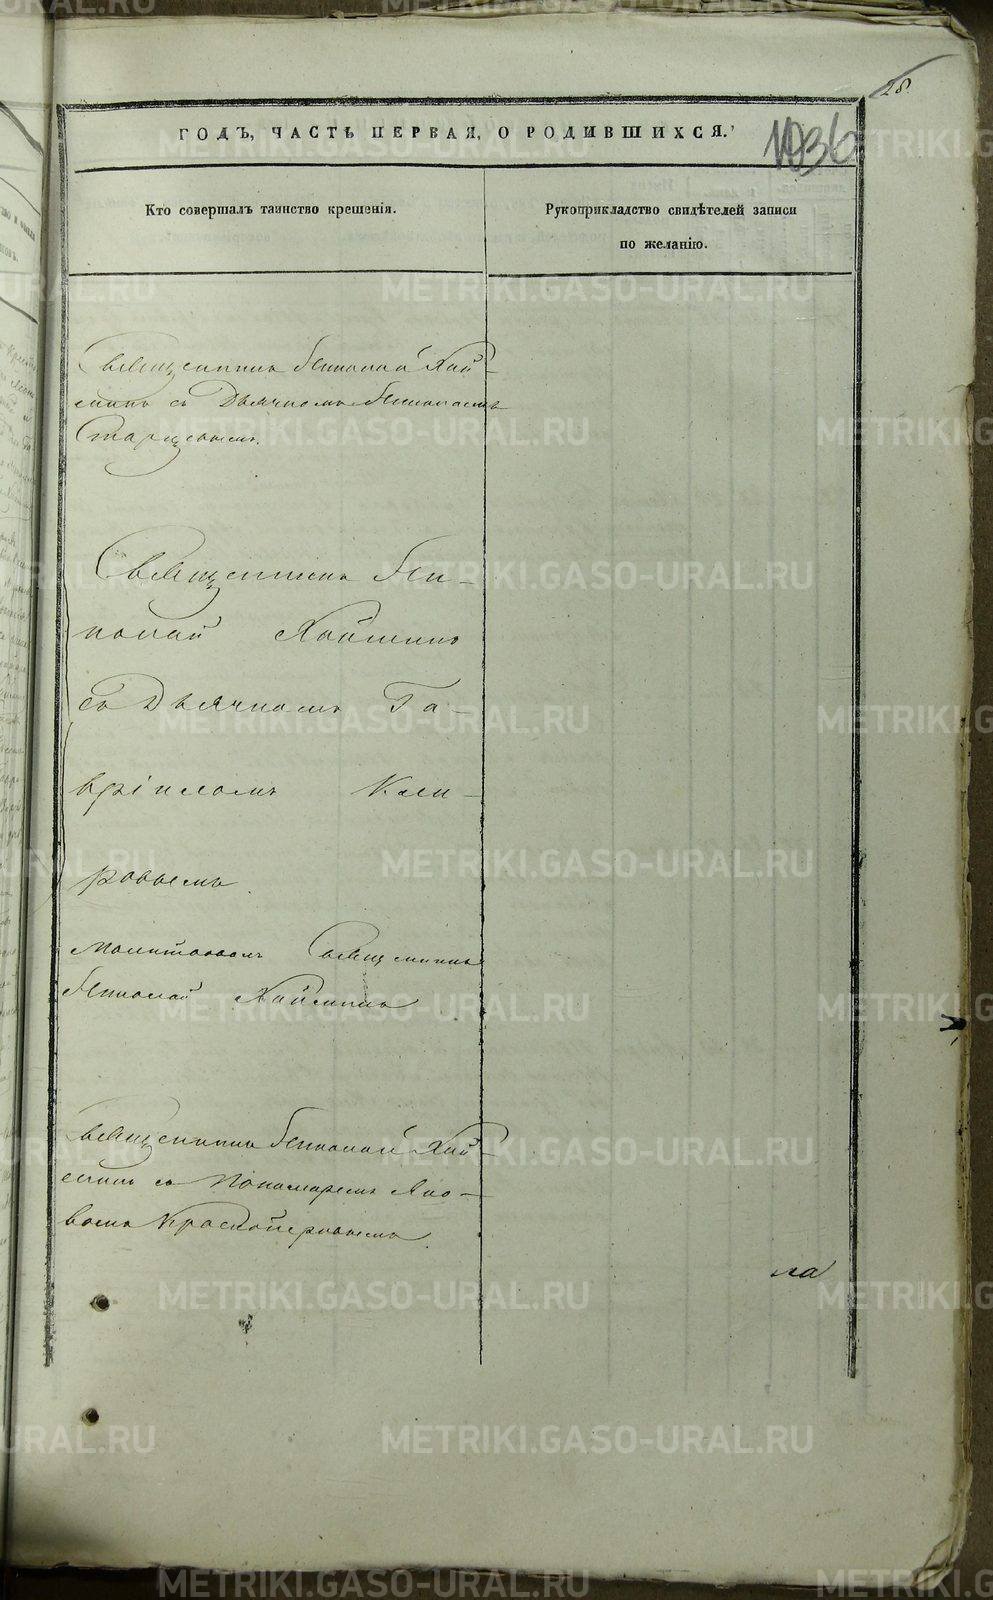 28.
ГОДЪ, ЧАСТЬ ПЕРВАЯ, О РОДИВШИХСЯ.
1036
Кто совершалъ таинство крещенія.
Рукоприкладство свидѣтелей записи
по желанію.
Священникъ Николай Хай-
минъ съ Дьячкомъ
Старцевымъ.
Священникъ Ни-
колай Хайминъ
съ Дьячкомъ Га-
вріиломъ Ки-
ровымъ.
Молитвовалъ Священникъ
Николай Хайминъ
Священникъ Николай Хай-
минъ съ Пономаремъ Яко-
вомъ Красноперовымъ.
METRIKI.GASO-URAL.RU